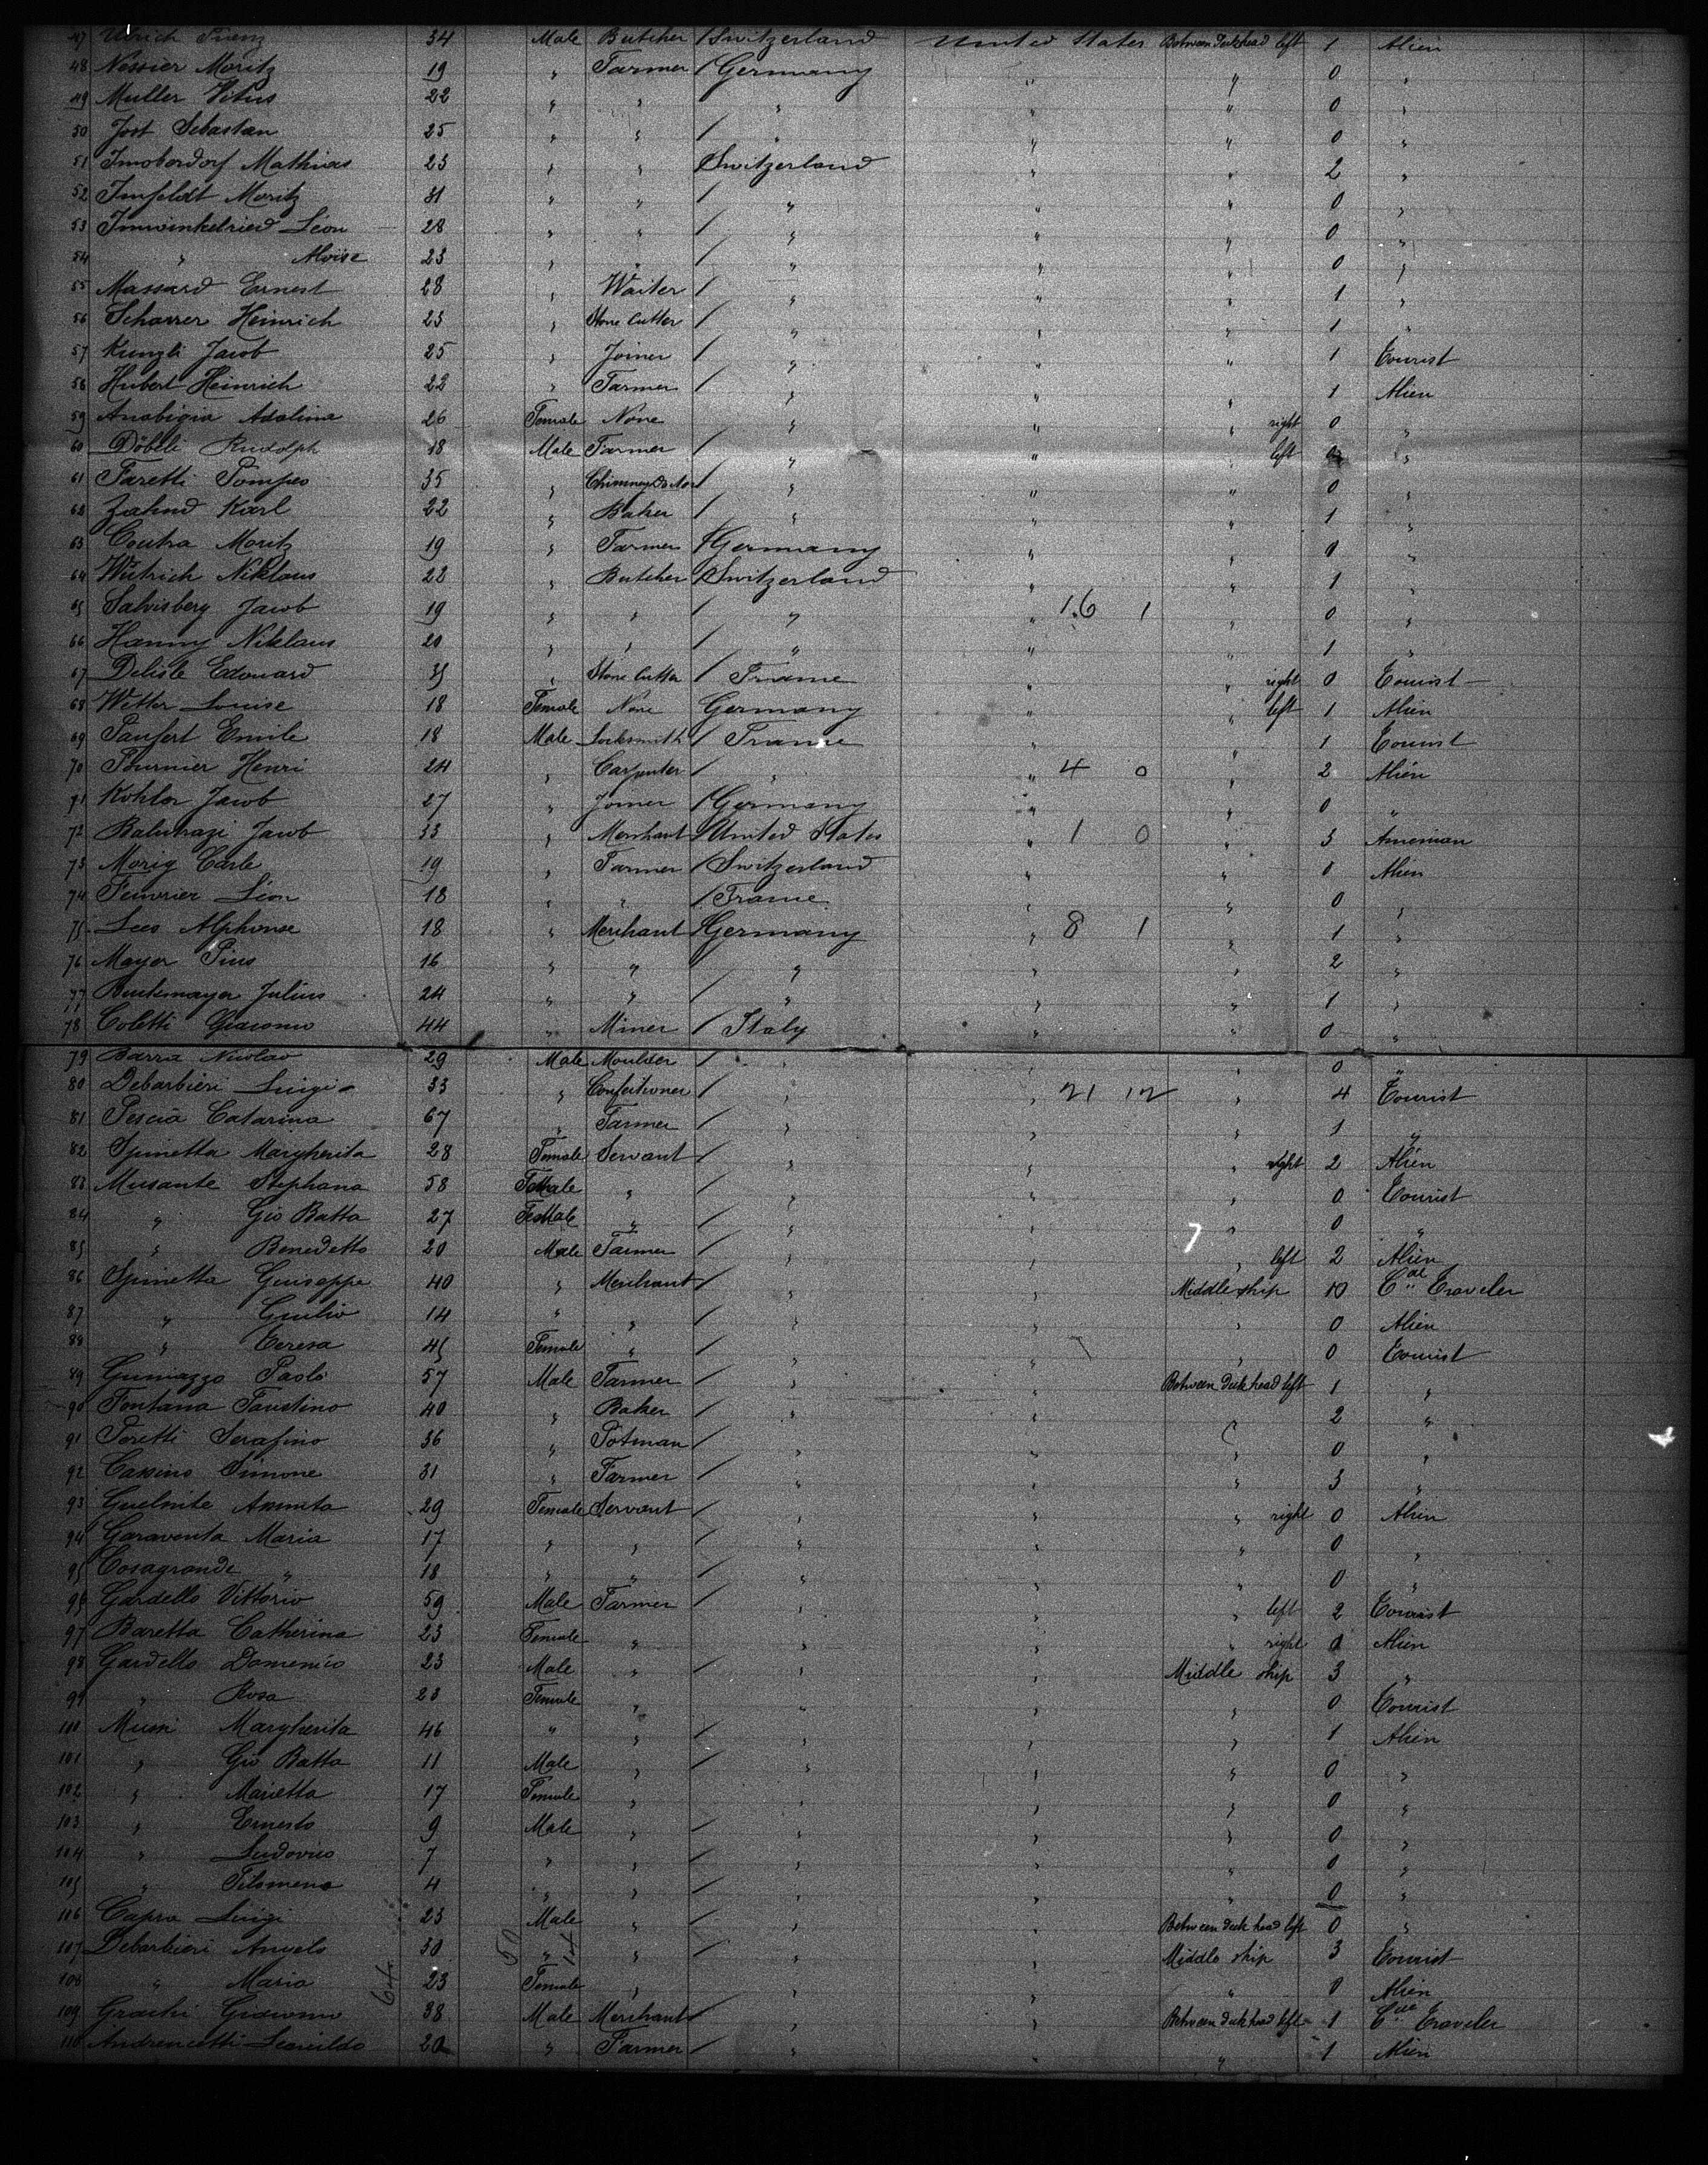 47 Ulrich Prenz 34 Male Butcher / Switzerland United States Between Deck head left 1 Alien
48 Nessier Moritz 19 " Farmer / Germany " " 0 "
49 Muller Vitus 22 " " " " " 0 "
50 Jost Sebastian 25 " " / " " " 0 "
51 Imoberdorf Mathias 23 " " Switzerland " " 2 "
52 Imfeldt Moritz 31 " " / " " " 0 "
53 Imwinkelried Léon 28 " " / " " " 0 "
54 " Aloïse 23 " " / " " " 0 "
55 Massard Ernest 28 " Waiter / " " " 1 "
56 Scharrer Heinrich 23 " Stone Cutter / " " " 1 "
57 Kunzli Jacob 25 " Joiner / " " " 1 Tourist
58 Hubert Heinrich 22 " Farmer / " " " 1 Alien
59 Anabigia Adaline 26 Female None " " " right 0 "
60 Döbeli Rudolph 18 Male Farmer / " " " left "
61 Faretti Pompeo 35 " Chimney / " " " 0 "
62 Zahnd Karl 22 " Baker / " " " 1 "
63 Coutra Moritz 19 " Farmer / Germany " " 0 "
64 Wütrich Niklaus 22 " Butcher / Switzerland " " 1 "
65 Salvisberg Jacob 19 " " / " " 16 1 " 0 "
66 Hanny Niklaus 20 " " / " " " 1 "
67 Delisle Edouard 35 " Stone Cutter / France " " right 0 Tourist
68 Wetter Louise 18 Female None Germany " " left 1 Alien
69 Paufert Emile 18 Male Locksmith / France " " 1 Tourist
70 Fournier Henri 24 " Carpenter / " " 4 0 " 2 Alien
71 Kohler Jacob 27 " Joiner / Germany " " 0 "
72 Balunazi Jacob 33 " Merchant / United States " 1 0 " 3 American
73 Morig Carle 19 " Farmer / Switzerland " " 0 Alien
74 Feuvrier Léon 18 " " / France " " 0 "
75 Lees Alphonse 18 " Merchant / Germany " 8 1 " 1 "
76 Mayer Pius 16 " " " " " 2 "
77 Buckmayer Julius 24 " " / " " " 1 "
78 Coletti Giacomo 44 " Miner / Italy " " 0 "
79 Barra Nicolao 29 Male Moulder / " " " 0 "
80 Debarbieri Luigi 33 " Confectioner / " " 21 12 " 4 Tourist
81 Pescia Catarina 67 " Farmer / " " " 1 "
82 Spinetta Margherita 28 Female Servant / " " " right 2 Alien
83 Musante Stephana 58 Female " / " " " 0 Tourist
84 " Gio Batta 27 " / " " " 0 "
85 " Benedetto 20 Male Farmer / " " " left 2 Alien
86 Spinetta Guiseppe 40 " Merchant / " " Middle ship 10 C.al Traveler
87 " Guilio 14 " " / " " " 0 Alien
88 " Teresa 45 Female " / " " " 0 Tourist
89 Gumazzo Paolo 57 Male Farmer / " " Between Deck head left 1 "
90 Fontana Faustino 40 " Baker / " " " 2 "
91 Peretti Serafino 36 " Potman / " " " 0 "
92 Cassino Simone 31 " Farmer / " " " 3 "
93 Guelnite Annita 29 Female Servant / " " " right 0 Alien
94 Garaventa Maria 17 " " / " " " 0 "
95 Cosagrande " 18 " " / " " " 0 "
96 Gardello Vittorio 59 Male Farmer / " " " left 2 Tourist
97 Baretta Catherina 23 Female " " " " right Alien
98 Gardello Domenico 23 Male " / " " Middle ship 3 "
99 " Rosa 23 Female " " " " 0 Tourist
100 Musni Margherita 46 " " / " " " 1 Alien
101 " Gio Batta 11 Male " / " " " 0 "
102 " Marietta 17 Female " " " " 0 "
103 " Ernesto 9 Male " / " " " 0 "
104 " Ludovico 7 " " / " " " 0 "
105 " Filomena 4 " " / " " " 0 "
106 Capra Luigi 23 Male " / " " Between deck head left 0 "
107 Debarbieri Angelo 30 " " / " " Middle ship 3 Tourist
108 " Maria 23 Female " " " " 0 Alien
109 Grachi Giacomo 38 Male Merchant / " " Between deck head left 1 C.al Traveler
110 Andrencetti 20 " Farmer / " " " 1 Alien